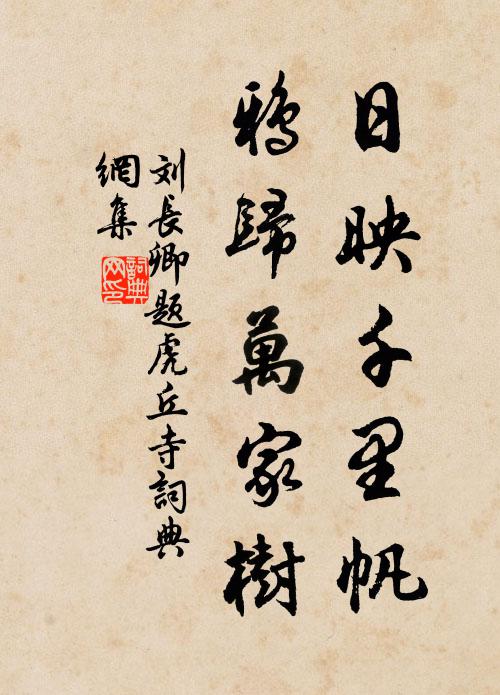 日映千里帆
鴉歸萬家樹
刘長卿題虎丘寺詞典
網集
詞典
网印